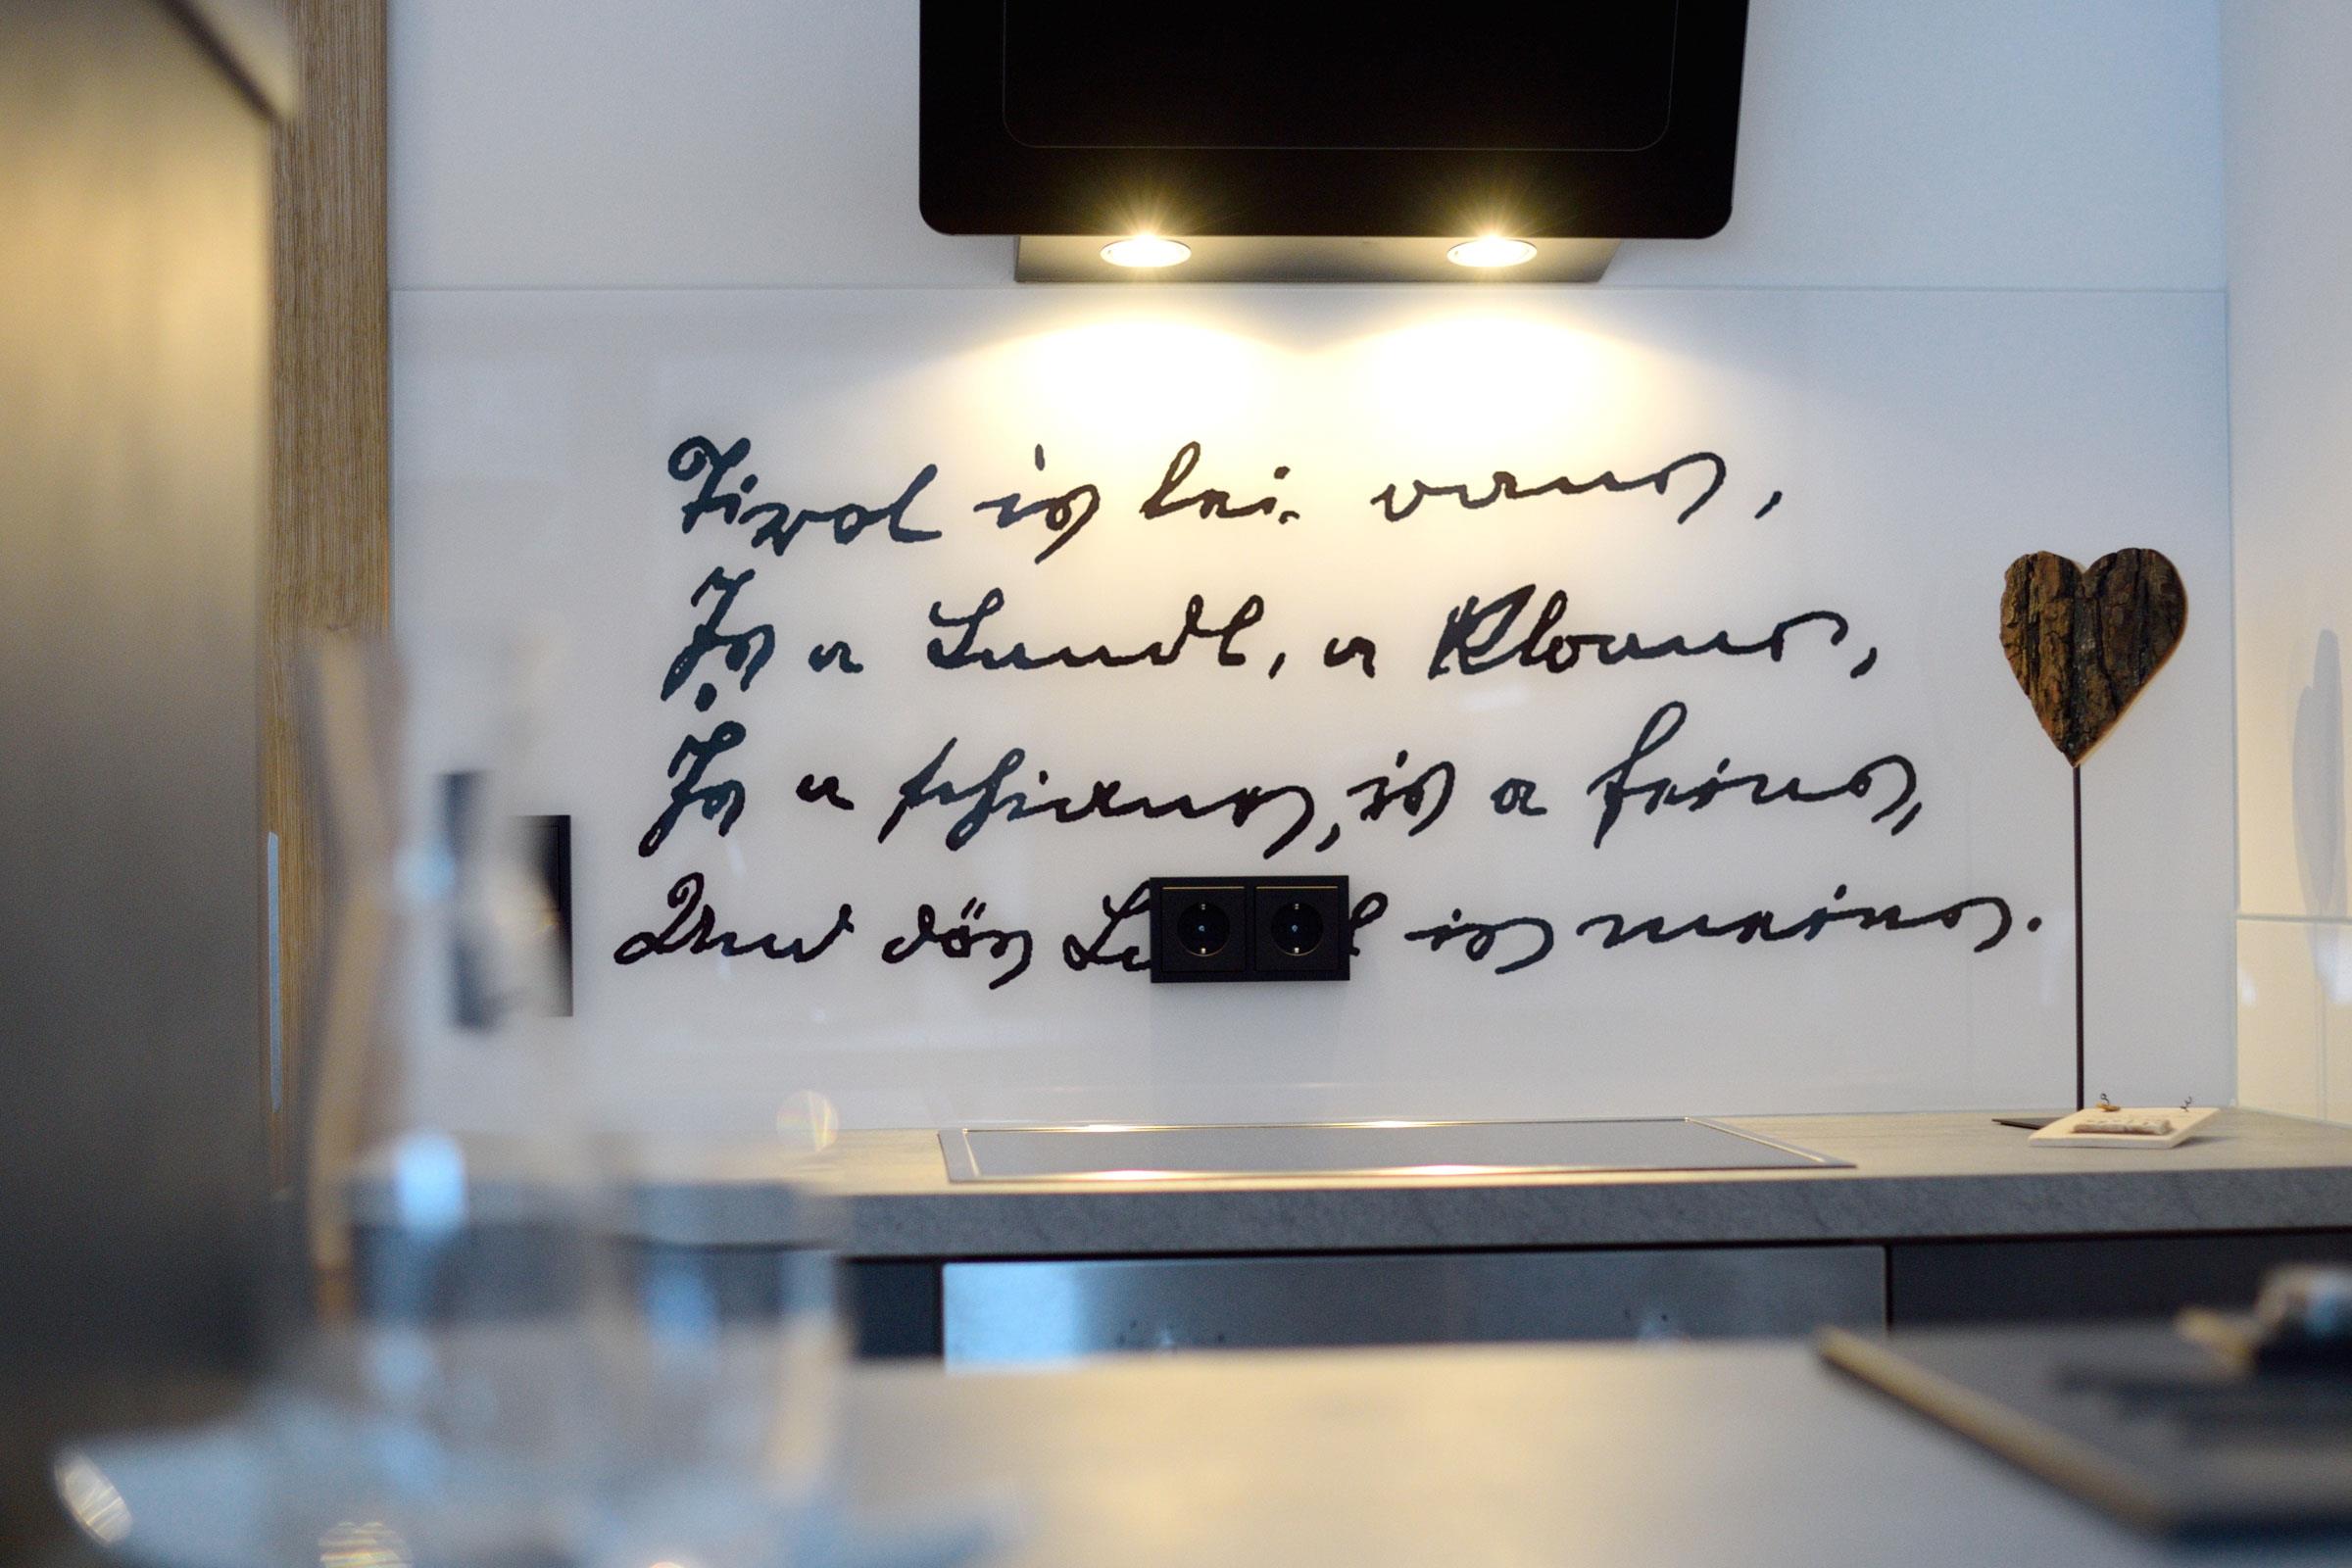 Tirol is lei oans,
Is a Landl, a Kloans,
Is a schians, is a feins,
Und dös is meins.